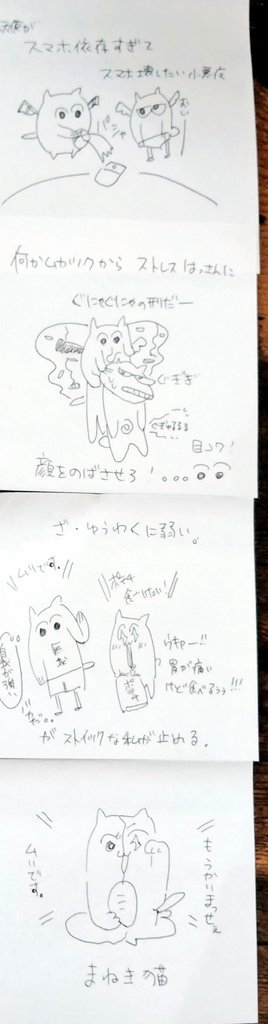 スマホ依存すぎて
スマホ壊したい小悪魔
おい
パシャ
何かムカツクから ストレスはっさんに
ぐにゃぐにゃの刑だー
ぐぎぎ
ぐぎゅるるる
目コワ!
顔をのばさせろ!。。。
ざ・ゆうわくに弱い。
ムリです。
ポテチ
食べたい!
無心
ポテチ
ウキャー!!
胃が痛い
けど食べるぅぅ!!!
自我が強い
がストイックな私が止める。
もうかいまっせぇ
ムリです。
まねきの猫